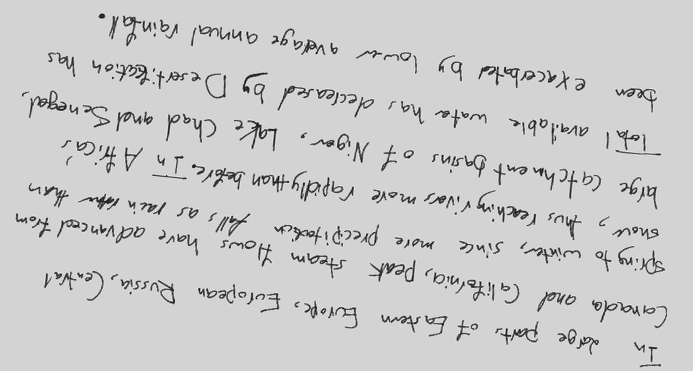 In large parts of Eastern Europe, European Russia, Central
Canada and California, peak steam flows have advanced from
spring to winter, since more precipitation falls as rain than
snow, thus reaching rivers more rapidly than before. In Africa's
large catchment basins of Niger, Lake Chad and Senegal,
Total available water has decreased by Desertification has
been exacerbated by lower average annual rainfall.